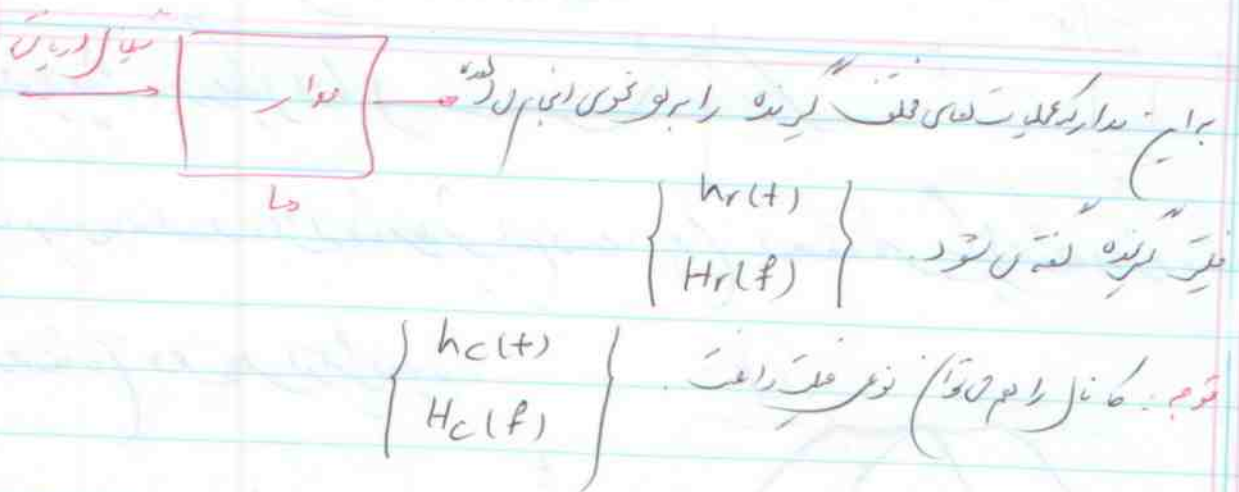 سیگنال دریافتی
مدار
ها
به این مدار که عملیات های مختلف گیرنده را به نحوی انجام می دهد
فیلتر گیرنده گفته می شود. { hr(t)
Hr(f) }
توجه: کانال را هم می توان نوعی فیلتر دانست. { hc(t)
Hc(f) }